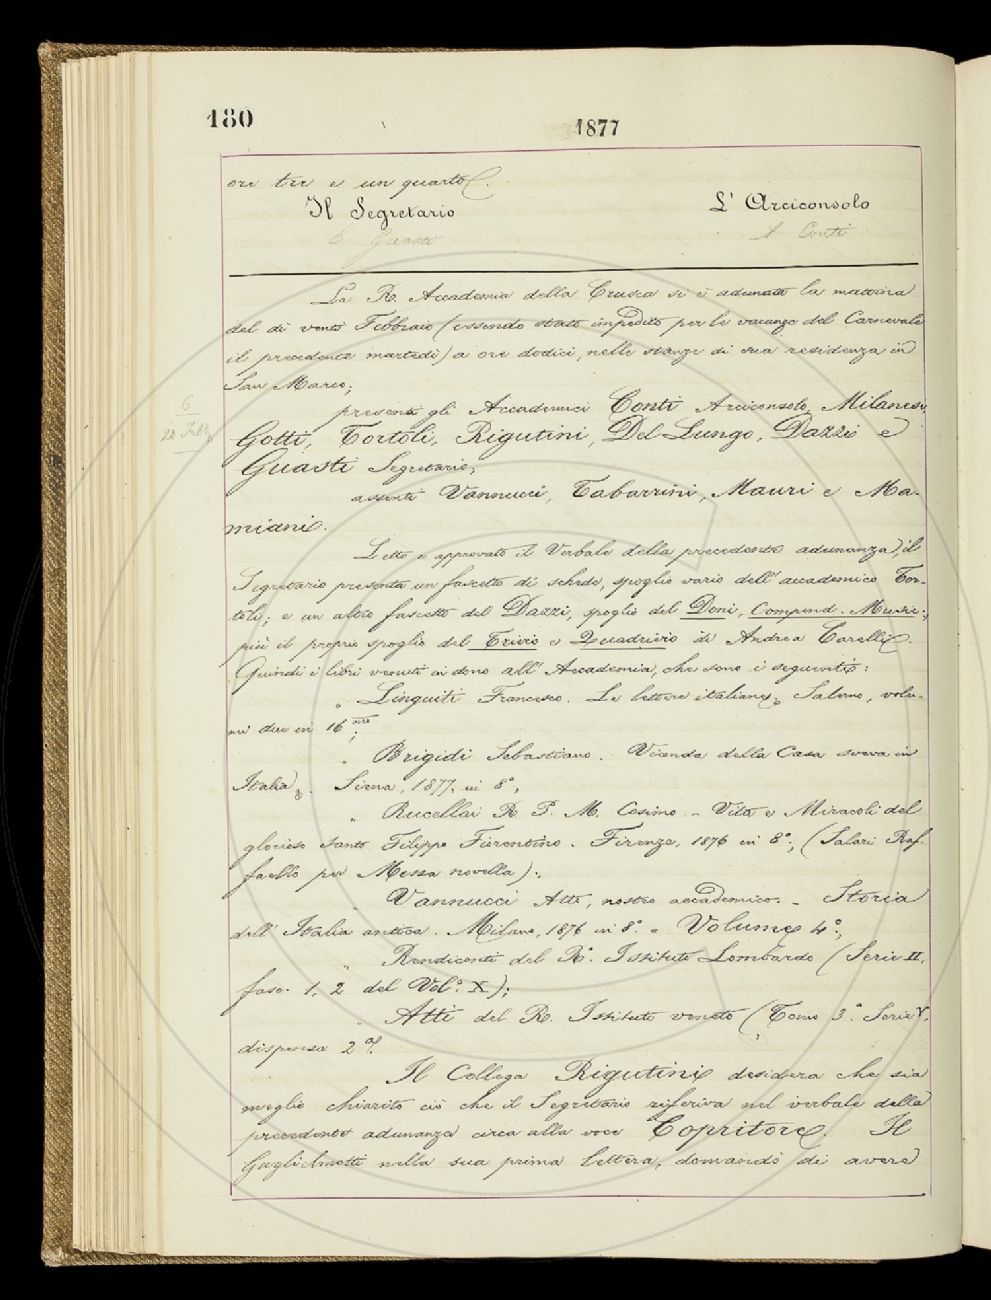 180
1877
ore tre e un quarto.
Il Segretario
L' Arciconsolo
C Guasti
A Conti
La R. Accademia della Crusca si è adunata la mattina
del dì venti Febbraio (essendo stato impedito per le vacanze del Carnevale
il precedente martedì) a ore dodici, nelle stanze di sua residenza in
San Marco;
presenti gli Accademici Conti Arciconsolo, Milanesi,
6
20 Febb.
Gotti, Tortoli, Rigutini, Del Lungo, Dazzi e
Guasti Segretario;
assenti Vannucci, Tabarrini, Mauri e Ma-
miani.
Letto e approvato il Verbale della precedente adunanza, il
Segretario presenta un fascetto di schede, spoglio vario dell' accademico Tor-
toli; e un altro fascetto del Dazzi, spoglio del Doni, Compend. Music.;
più il proprio spoglio del Trivio e Quadrivio di Andrea Carelli.
Quindi i libri venuti in dono all' Accademia, che sono i seguenti:
" Linguiti Francesco. Le lettere italiane, Salerno, volu-
mi due in 16mo;
" Brigidi Sebastiano. Vicenda della Casa sveva in
Italia. Siena, 1877. in 8°;
" Rucellai R. P. M. Cosimo. - Vita e Miracoli del
glorioso santo Filippo Fiorentino. Firenze, 1876 in 8°; (Salari Raf-
faello per Messa novella);
" Vannucci Atto, nostro accademico. - Storia
dell' Italia antica. Milano, 1876 in 8°. = Volume 4°;
" Rendiconti del R°. Istituto Lombardo (Serie II.
fasc. 1, 2 del Vol°. X);
" Atti del R. Istituto veneto (Tomo 3°. Serie V,
dispensa 2a.
Il Collega Rigutini desidera che sia
meglio chiarito ciò che il Segretario riferiva nel verbale della
precedente adunanza circa alla voce Copritore. Il
Guglielmotti nella sua prima lettera, domandò di avere